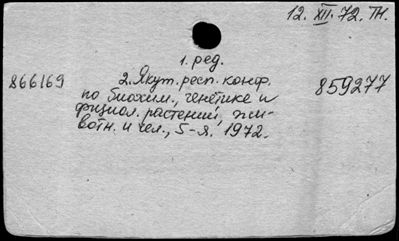 12. XII. 72. ТН.
1. ред.
866169
2. Якут. респ. конф.
859277
по биохим., генетике и
физиол. растений, жи-
вотн. и чел., 5-я. 1972.